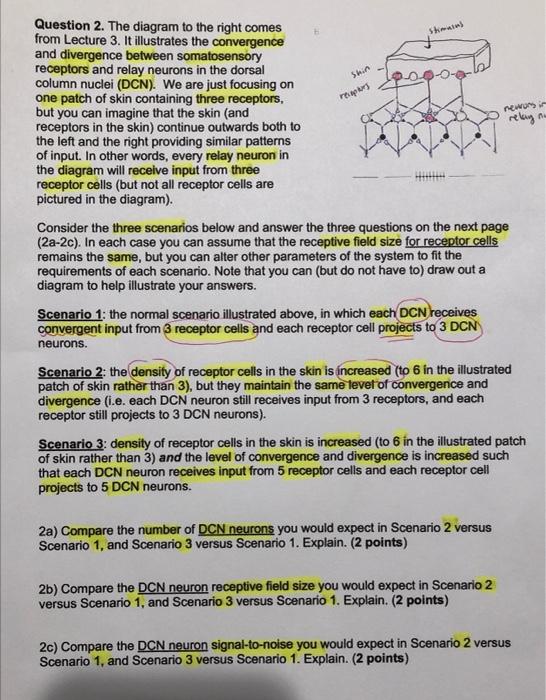 Question 2. The diagram to the right comes
from Lecture 3. It illustrates the convergence
and divergence between somatosensory
receptors and relay neurons in the dorsal
column nuclei (DCN). We are just focusing on
one patch of skin containing three receptors,
but you can imagine that the skin (and
receptors in the skin) continue outwards both to
the left and the right providing similar patterns
of input. In other words, every relay neuron in
the diagram will receive input from three
receptor cells (but not all receptor cells are
pictured in the diagram).
stimulus
skin
receptors
neurons in
relay
Consider the three scenarios below and answer the three questions on the next page
(2a-2c). In each case you can assume that the receptive field size for receptor cells
remains the same, but you can alter other parameters of the system to fit the
requirements of each scenario. Note that you can (but do not have to) draw out a
diagram to help illustrate your answers.
Scenario 1: the normal scenario illustrated above, in which each DCN receives
convergent input from 3 receptor cells and each receptor cell projects to 3 DCN
neurons.
Scenario 2: the density of receptor cells in the skin is increased (to 6 in the illustrated
patch of skin rather than 3), but they maintain the same level of convergence and
divergence (i.e. each DCN neuron still receives input from 3 receptors, and each
receptor still projects to 3 DCN neurons).
Scenario 3: density of receptor cells in the skin is increased (to 6 in the illustrated patch
of skin rather than 3) and the level of convergence and divergence is increased such
that each DCN neuron receives input from 5 receptor cells and each receptor cell
projects to 5 DCN neurons.
2a) Compare the number of DCN neurons you would expect in Scenario 2 versus
Scenario 1, and Scenario 3 versus Scenario 1. Explain. (2 points)
2b) Compare the DCN neuron receptive field size you would expect in Scenario 2
versus Scenario 1, and Scenario 3 versus Scenario 1. Explain. (2 points)
2c) Compare the DCN neuron signal-to-noise you would expect in Scenario 2 versus
Scenario 1, and Scenario 3 versus Scenario 1. Explain. (2 points)